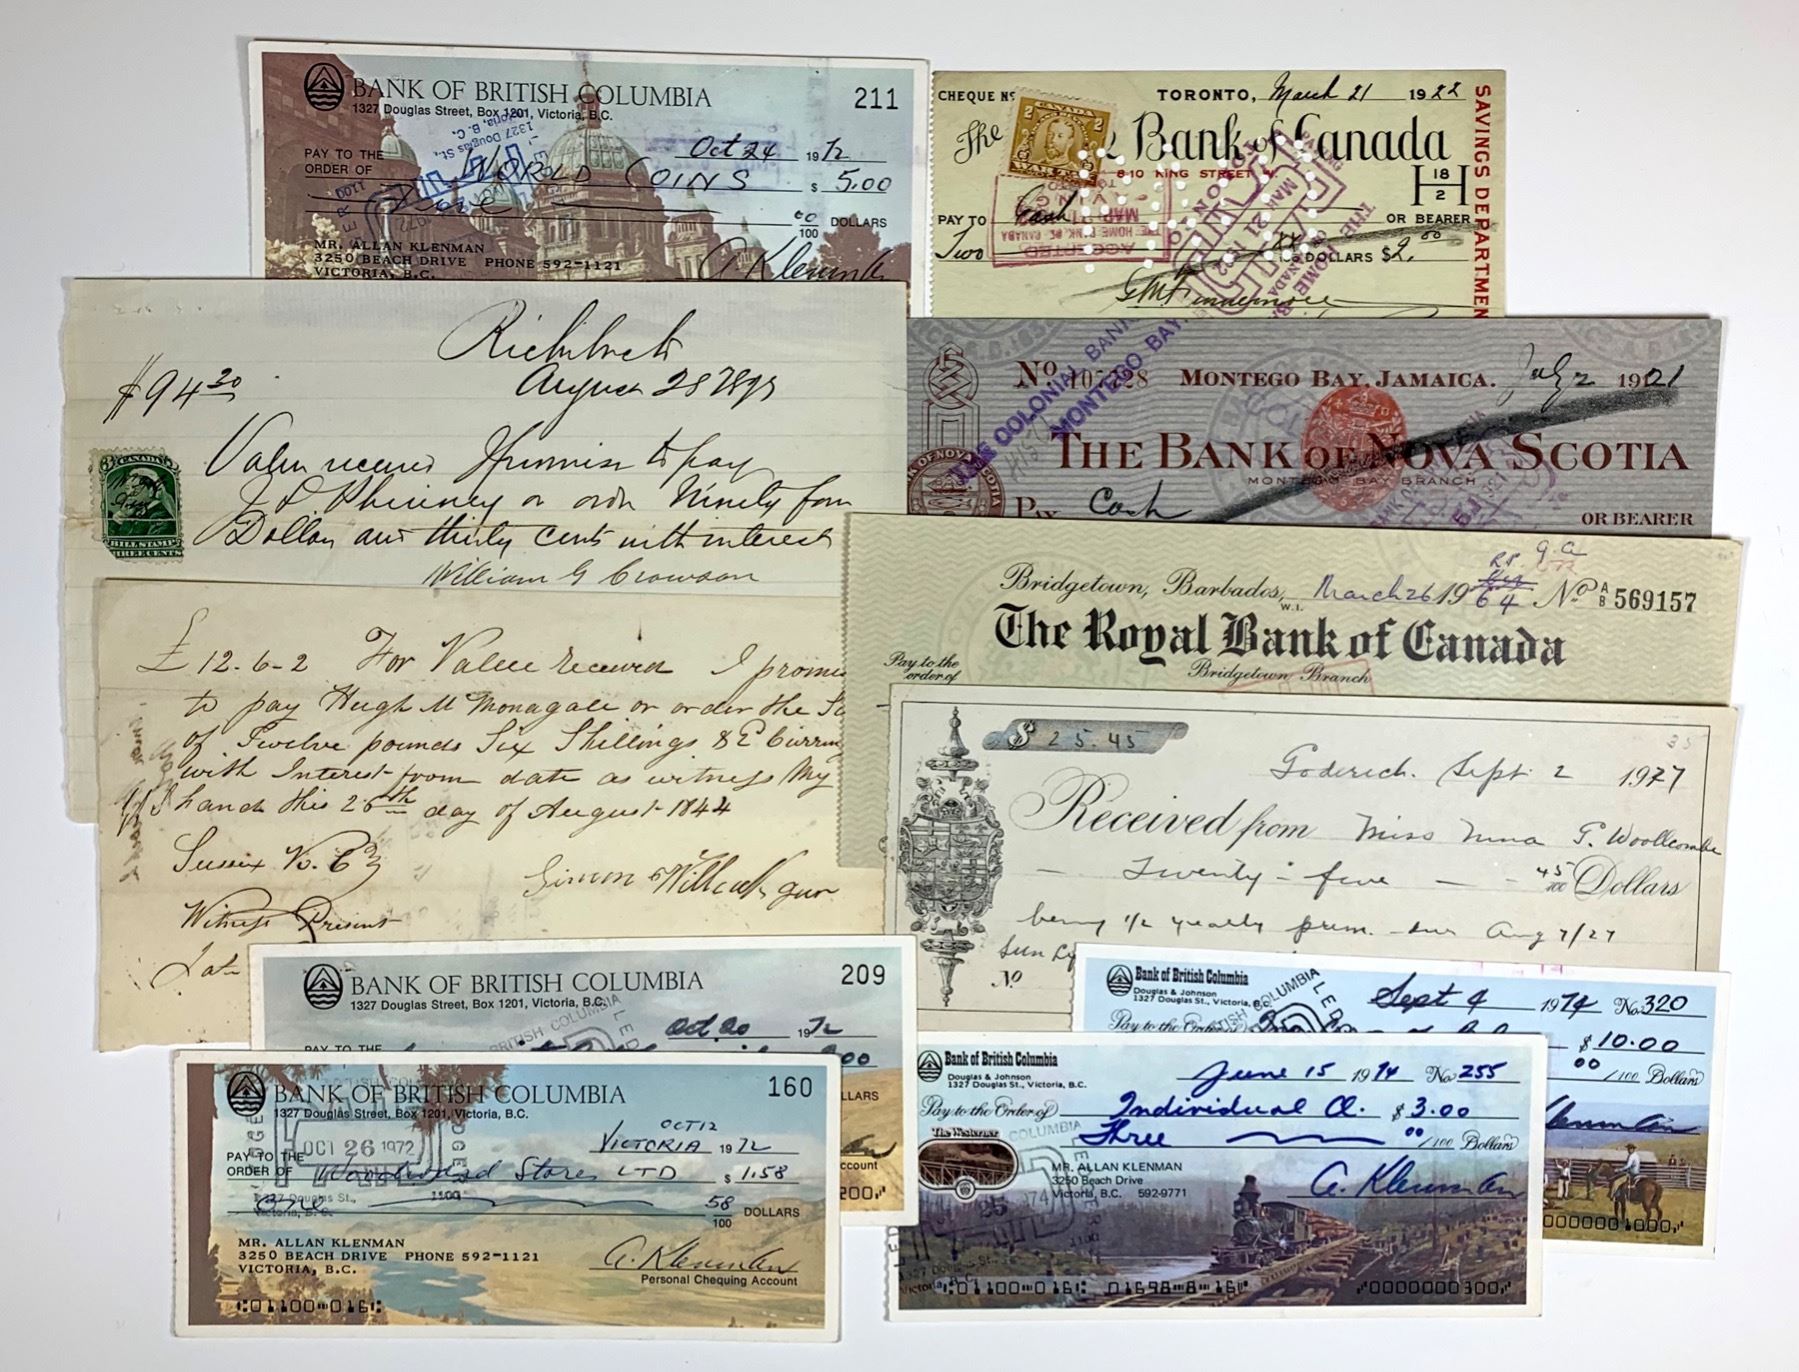 BANK OF BRITISH COLUMBIA
211
1327 Douglas Street, Box 1201, Victoria, B.C.
Oct 24 1972
PAY TO THE
ORDER OF WORLD COINS $ 5.00
00/100 DOLLARS
MR. ALLAN KLENMAN
3250 BEACH DRIVE PHONE 592-1121
VICTORIA, B.C.
A. Klenman
CHEQUE Nº
TORONTO, March 21 1922
CANADA
2 2
The Bank of Canada
810 KING STREET W.
H 18/2 H
SAVINGS DEPARTMEN
PAY TO Cash OR BEARER
Two DOLLARS $2.00
ACCEPTED
THE HOME BANK OF CANADA
MAR 21
Richibucto
$94 30
August 28 1895
Value received I promise to pay
J D Phinney or order Ninety four
Dollars and thirty cents with interest
William G Crowson
CANADA
BILL STAMP
THREE CENTS
No. 107728 MONTEGO BAY, JAMAICA. July 2 1921
THE COLONIAL BANK
MONTEGO BAY
THE BANK OF NOVA SCOTIA
MONTEGO BAY BRANCH
PAY Cash OR BEARER
Bridgetown, Barbados, W.I. March 26 1964 No A/B 569157
The Royal Bank of Canada
Bridgetown Branch
Pay to the
order of
£12-6-2 For Value received I promi
to pay Hugh McMonagale or order the
of Twelve pounds Six Shillings &
with Interest from date as witness My
hand this 26th day of August 1844
Sussex
Simon
Witness Present
$ 25.45
35
Goderich. Sept 2 1927
Received from Miss Nina G. Woollcombe
Twenty-five 45/100 Dollars
being 1/2 yearly prem. due Aug 7/27
Sun
No
BANK OF BRITISH COLUMBIA
209
1327 Douglas Street, Box 1201, Victoria, B.C.
Oct 20 1972
PAY TO THE
LLARS
ccount
200
Bank of British Columbia
Douglas & Johnson
1327 Douglas St., Victoria, B.C.
Sept 4 1974 No. 320
Pay to the Order
$ 10.00
00/100 Dollars
Klenman
0000001000
BANK OF BRITISH COLUMBIA
160
1327 Douglas Street, Box 1201, Victoria, B.C.
OCT 26 1972
OCT 12
VICTORIA 1972
PAY TO THE
ORDER OF Woodward Stores LTD $ 1.58
One 58/100 DOLLARS
MR. ALLAN KLENMAN
3250 BEACH DRIVE PHONE 592-1121
VICTORIA, B.C.
A. Klenman
Personal Chequing Account
01100-016
Bank of British Columbia
Douglas & Johnson
1327 Douglas St., Victoria, B.C.
June 15 1974 No. 255
Pay to the Order of Individual A. $ 3.00
Three 00/100 Dollars
The Westerner
MR. ALLAN KLENMAN
3250 Beach Drive
Victoria, B.C. 592-9771
A. Klenman
01100-016 01698-8-16 0000000300